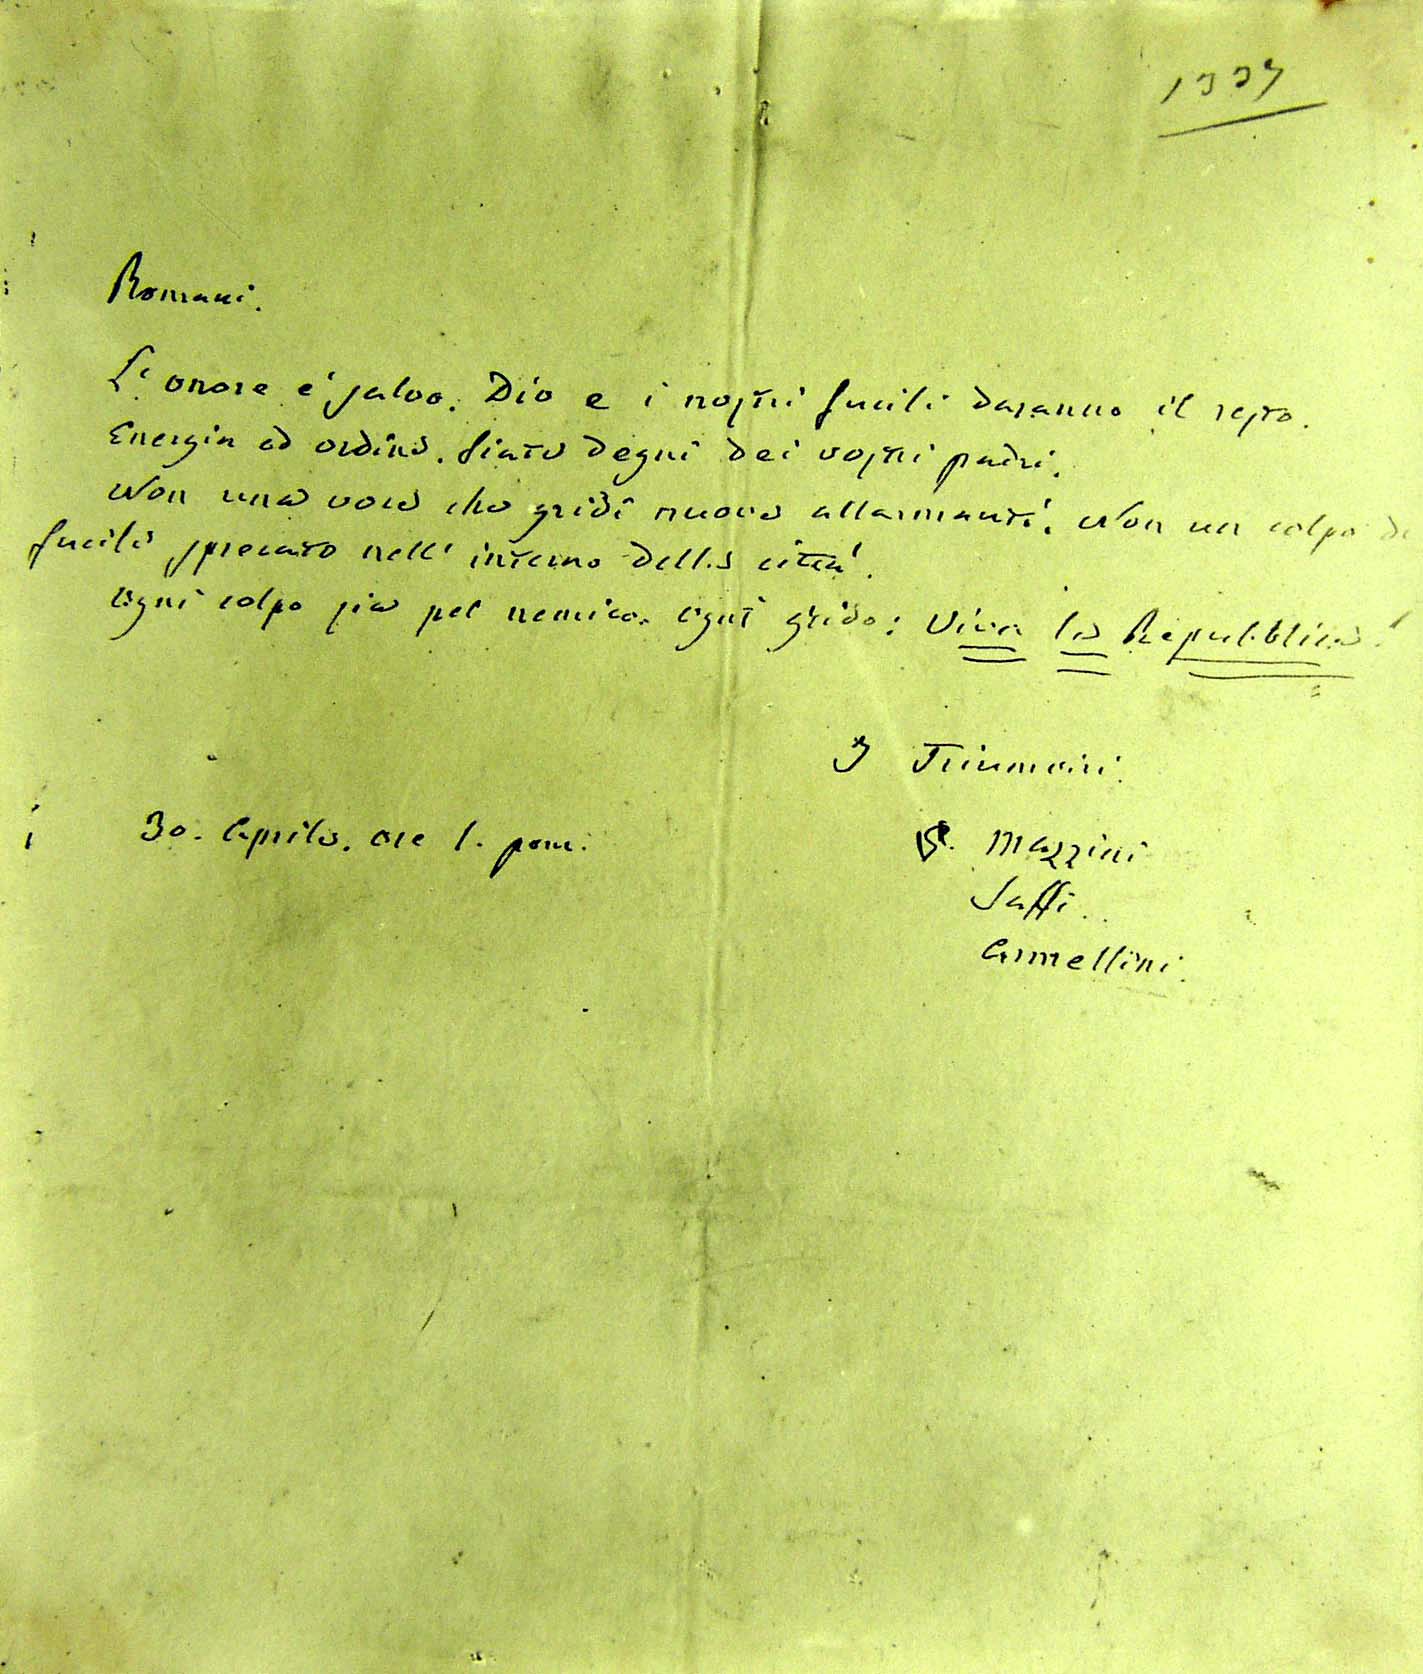 1337
Romani.
L'onore e' salvo. Dio e i nostri fucili daranno il resto.
Energia ed ordine. Siate degni dei vostri padri.
Non una voce che gridi nuove allarmanti. Non un colpo di
fucile sprecato nell' interno della città.
Ogni colpo sia pel nemico. Ogni grido: Viva la Repubblica!
I Triumviri.
30. Aprile. ore 1. pom.
Mazzini
Saffi.
Armellini.